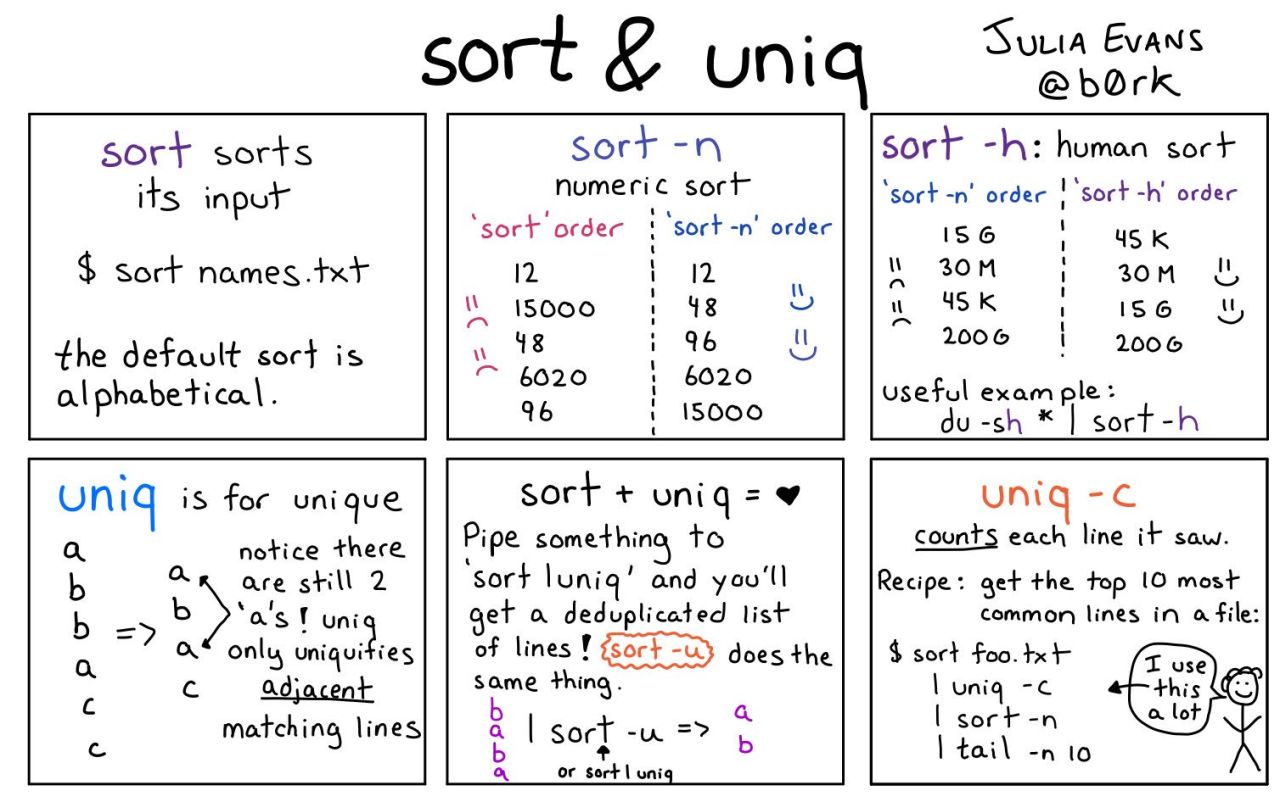 sort & uniq
JULIA EVANS
@b0rk
sort sorts
its input
$ sort names.txt
the default sort is
alphabetical.
sort -n
numeric sort
'sort' order
12
15000
48
6020
96
'sort -n' order
12
48
96
6020
15000
sort -h: human sort
'sort -n' order
15 G
30 M
45 K
200 G
'sort -h' order
45 K
30 M
15 G
200 G
useful example:
du -sh * | sort -h
uniq is for unique
a
b
b
a
c
c
=>
a
b
a
c
notice there
are still 2
'a's! uniq
only uniquifies
adjacent
matching lines
sort + uniq = ♥
Pipe something to
'sort | uniq' and you'll
get a deduplicated list
of lines! sort -u does the
same thing.
b
a
b
a
| sort -u =>
a
b
or sort | uniq
uniq -c
counts each line it saw.
Recipe: get the top 10 most
common lines in a file:
$ sort foo.txt
| uniq -c
| sort -n
| tail -n 10
I use
this
a lot